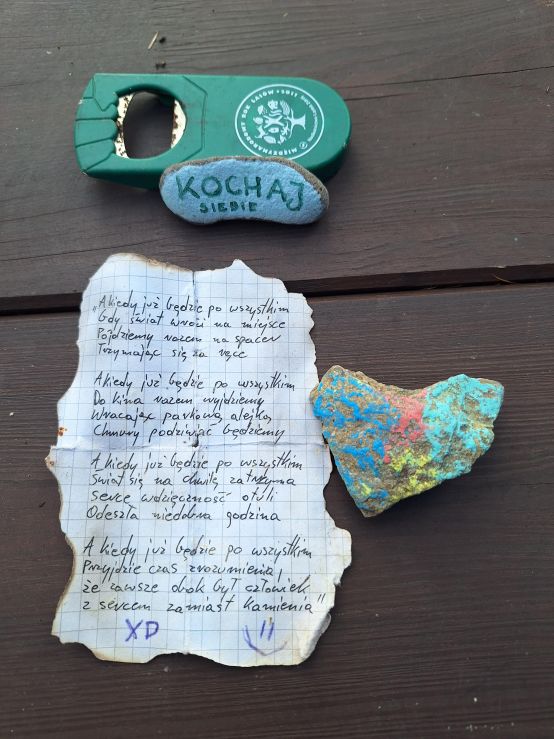 MIĘDZYNARODOWY ROK LASÓW • 2011
KOCHAJ
SIEBIE
"A kiedy już będzie po wszystkim
Gdy świat wróci na miejsce
Pójdziemy razem na spacer
Trzymając się za ręce
A kiedy już będzie po wszystkim
Do kina razem wyjdziemy
Wracając parkową alejką
Chmury podziwiać będziemy
A kiedy już będzie po wszystkim
Świat się na chwilę zatrzyma
Serce wdzięczność otuli
Odeszła niedobra godzina
A kiedy już będzie po wszystkim
Przyjdzie czas zrozumienia,
że zawsze obok był człowiek
z sercem zamiast kamienia"
XD